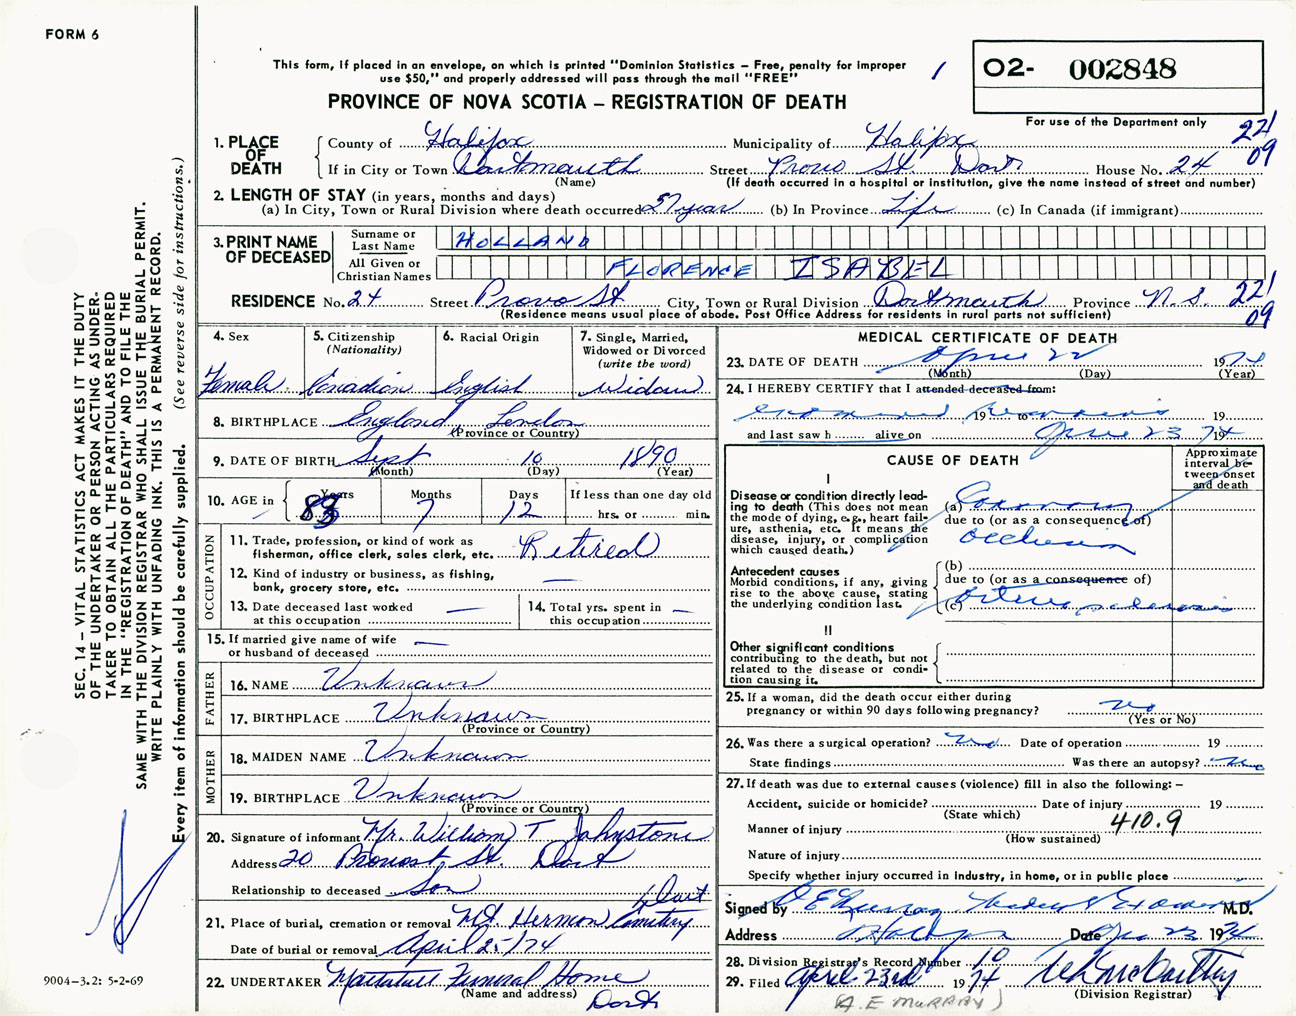 FORM 6
This form, if placed in an envelope, on which is printed "Dominion Statistics – Free, penalty for improper
use $50," and properly addressed will pass through the mail "FREE"
O2- 002848
PROVINCE OF NOVA SCOTIA – REGISTRATION OF DEATH
For use of the Department only
221
09
1. PLACE OF DEATH
County of Halifax Municipality of Halifax
If in City or Town Dartmouth Street Provo St. Dart House No. 24
(Name) (If death occurred in a hospital or institution, give the name instead of street and number)
2. LENGTH OF STAY (in years, months and days)
(a) In City, Town or Rural Division where death occurred 57 year (b) In Province Life (c) In Canada (if immigrant)
3. PRINT NAME OF DECEASED
Surname or Last Name HOLLAND
All Given or Christian Names FLORENCE ISABEL
RESIDENCE No. 24 Street Provo St City, Town or Rural Division Dartmouth Province N. S. 221
09
(Residence means usual place of abode. Post Office Address for residents in rural parts not sufficient)
4. Sex
Female
5. Citizenship (Nationality)
Canadian
6. Racial Origin
English
7. Single, Married, Widowed or Divorced (write the word)
Widow
8. BIRTHPLACE England London
(Province or Country)
9. DATE OF BIRTH Sept 10 1890
(Month) (Day) (Year)
10. AGE in Years Months Days If less than one day old
83 7 12 hrs. or min.
OCCUPATION
11. Trade, profession, or kind of work as fisherman, office clerk, sales clerk, etc. Retired
12. Kind of industry or business, as fishing, bank, grocery store, etc. —
13. Date deceased last worked at this occupation —
14. Total yrs. spent in this occupation —
15. If married give name of wife or husband of deceased —
FATHER
16. NAME Unknown
17. BIRTHPLACE Unknown
(Province or Country)
MOTHER
18. MAIDEN NAME Unknown
19. BIRTHPLACE Unknown
(Province or Country)
20. Signature of informant Mr. William T Johnstone
Address 20 Provost St. Dart
Relationship to deceased Son
21. Place of burial, cremation or removal Mt. Hermon Cemetery Dart
Date of burial or removal April 25/74
22. UNDERTAKER Funeral Home
(Name and address) Dart
MEDICAL CERTIFICATE OF DEATH
23. DATE OF DEATH April 22 1974
(Month) (Day) (Year)
24. I HEREBY CERTIFY that I attended deceased from:
examined remains 19 to 19
and last saw h alive on 23 74 19
CAUSE OF DEATH
Approximate interval between onset and death
I
Disease or condition directly leading to death (This does not mean the mode of dying, e.g., heart failure, asthenia, etc. It means the disease, injury, or complication which caused death.)
(a) Coronary
due to (or as a consequence of)
Occlusion
Antecedent causes
Morbid conditions, if any, giving rise to the above cause, stating the underlying condition last.
(b)
due to (or as a consequence of)
(c) Arteriosclerosis
II
Other significant conditions
contributing to the death, but not related to the disease or condition causing it.
25. If a woman, did the death occur either during pregnancy or within 90 days following pregnancy? no
(Yes or No)
26. Was there a surgical operation? no Date of operation 19
State findings Was there an autopsy? no
27. If death was due to external causes (violence) fill in also the following: –
Accident, suicide or homicide? Date of injury 19
(State which)
Manner of injury 410.9
(How sustained)
Nature of injury
Specify whether injury occurred in Industry, in home, or in public place
Signed by A E Murray Medical Examiner M.D.
Address Halifax Date 23 1974
28. Division Registrar's Record Number 10
29. Filed April 23rd 1974 McCarthy
(Division Registrar)
(A. E MURRAY)
SEC. 14 – VITAL STATISTICS ACT MAKES IT THE DUTY
OF THE UNDERTAKER OR PERSON ACTING AS UNDER-
TAKER TO OBTAIN ALL THE PARTICULARS REQUIRED
IN THE "REGISTRATION OF DEATH" AND TO FILE THE
SAME WITH THE DIVISION REGISTRAR WHO SHALL ISSUE THE BURIAL PERMIT.
WRITE PLAINLY WITH UNFADING INK. THIS IS A PERMANENT RECORD.
Every item of information should be carefully supplied. (See reverse side for instructions.)
9004-3.2: 5-2-69